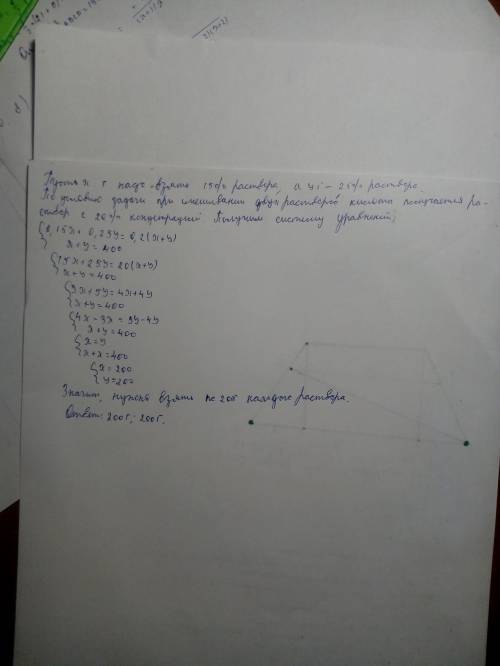 Пусть x г надо взять 15% раствора, а y г - 25% раствора.
По условию задачи при смешивании двух растворов кислоты получается ра-
створ с 20% концентрацией Получим систему уравнений:
{0,15x + 0,25y = 0,2(x+y)
x+y = 400
{15x+25y = 20(x+y)
x+y = 400
{3x+5y = 4x+4y
x+y = 400
{4x-3x = 5y-4y
x+y = 400
{x=y
x+x=400
{x=200
y=200
Значит, нужно взять по 200 каждого раствора.
Ответ: 200г; 200г.